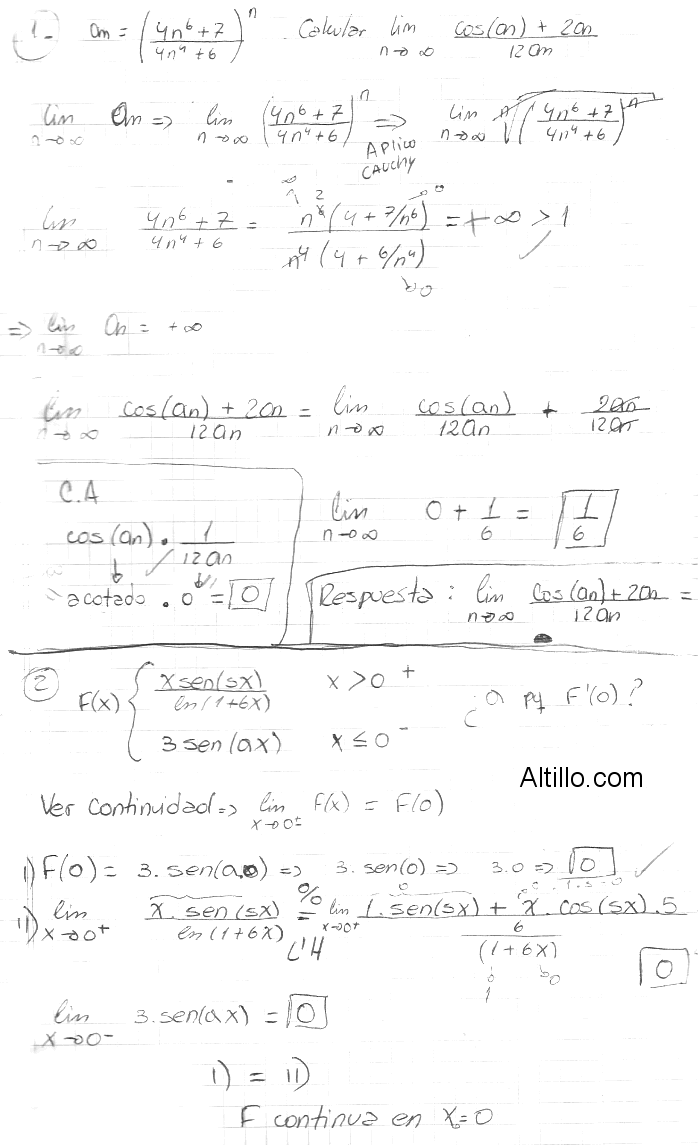 1- an = ((4n⁶+7)/(4n⁴+6))ⁿ . Calcular lim n→∞ (cos(an) + 2an)/(12an)
lim n→∞ an => lim n→∞ ((4n⁶+7)/(4n⁴+6))ⁿ => APlico CAUCHY lim n→∞ ⁿ√((4n⁶+7)/(4n⁴+6))ⁿ
lim n→∞ (4n⁶+7)/(4n⁴+6) = n²(4 + 7/n⁶)/(n⁴(4 + 6/n⁴)) = +∞ > 1
=> lim n→∞ an = +∞
lim n→∞ (cos(an) + 2an)/(12an) = lim n→∞ cos(an)/(12an) + 2an/12an
C.A
cos(an) . 1/(12an)
acotado . 0 = 0
lim n→∞ 0 + 1/6 = 1/6
Respuesta : lim n→∞ (cos(an)+2an)/(12an) =
2 F(x) { x sen(5x)/ln(1+6x) x>0⁺
3 sen(ax) x≤0⁻
¿a pq F'(0)?
Altillo.com
Ver Continuidad => lim x→0± F(x) = F(0)
I) F(0) = 3.sen(a.0) => 3.sen(0) => 3.0 => 0
II) lim x→0⁺ x.sen(5x)/ln(1+6x) = 0/0 L'H lim x→0⁺ (1.sen(5x) + x.cos(5x).5)/(6/(1+6x)) 0
lim x→0⁻ 3.sen(ax) = 0
I) = II)
F continua en x=0